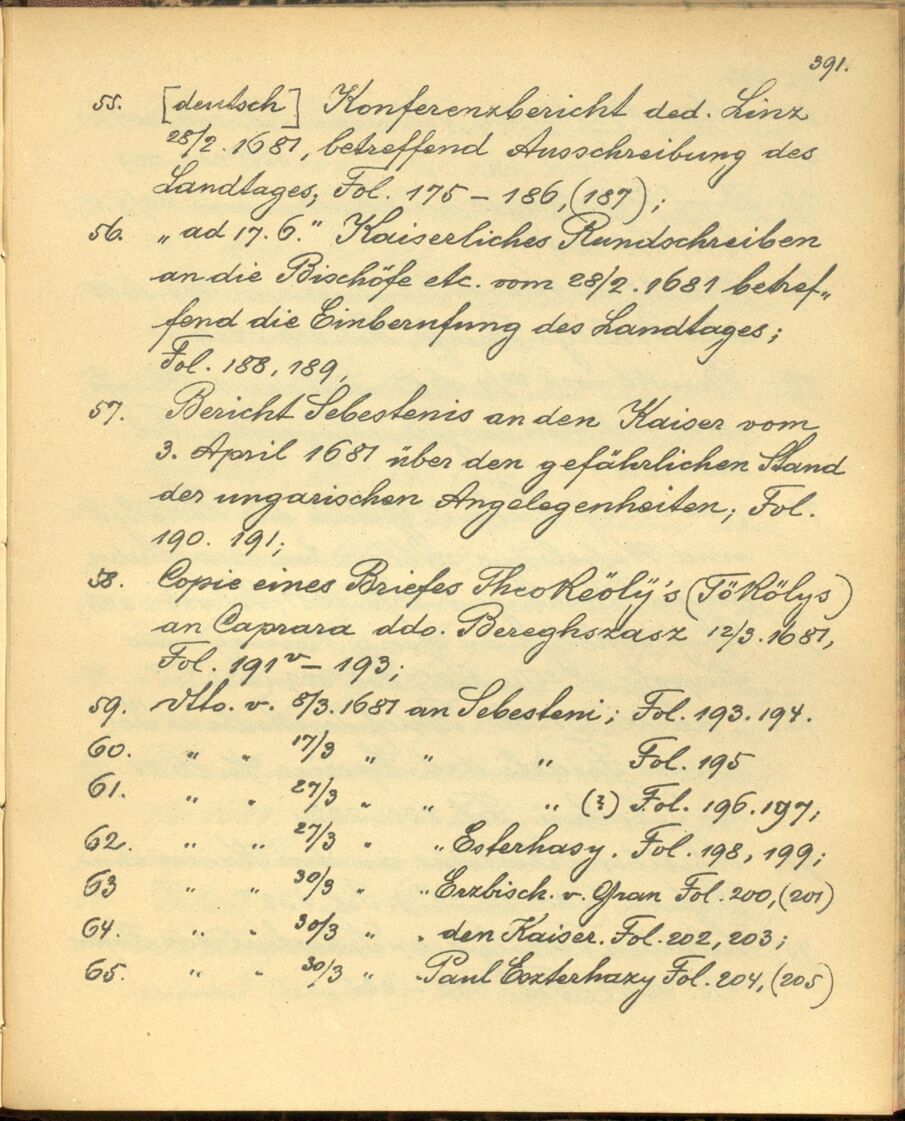 391.
55. [deutsch] Konferenzbericht ded. Linz
28/2. 1681, betreffend Ausschreibung des
Landtages; Fol. 175 – 186, (187);
56. „ad 17. 6." Kaiserliches Rundschreiben
an die Bischöfe etc. vom 28/2. 1681 betref„
fend die Einberufung des Landtages;
Fol. 188, 189,
57. Bericht Sebestenis an den Kaiser vom
3. April 1681 über den gefährlichen Stand
der ungarischen Angelegenheiten; Fol.
190. 191;
58. Copie eines Briefes Theokeöly's (Tökölys)
an Caprara ddo. Bereghszasz 12/3. 1681,
Fol. 191v – 193;
59. dtto. v. 8/3. 1681 an Sebesteni; Fol. 193. 194.
60. " " 17/3 " " " Fol. 195
61. " " 27/3 " " " (?) Fol. 196. 197;
62. " " 27/3 " " Esterhasy. Fol. 198, 199;
63 " " 30/3 " " Erzbisch. v. Gran Fol. 200, (201)
64. " " 30/3 " " den Kaiser. Fol. 202, 203;
65. " " 30/3 " " Paul Eszterhazy Fol. 204, (205)